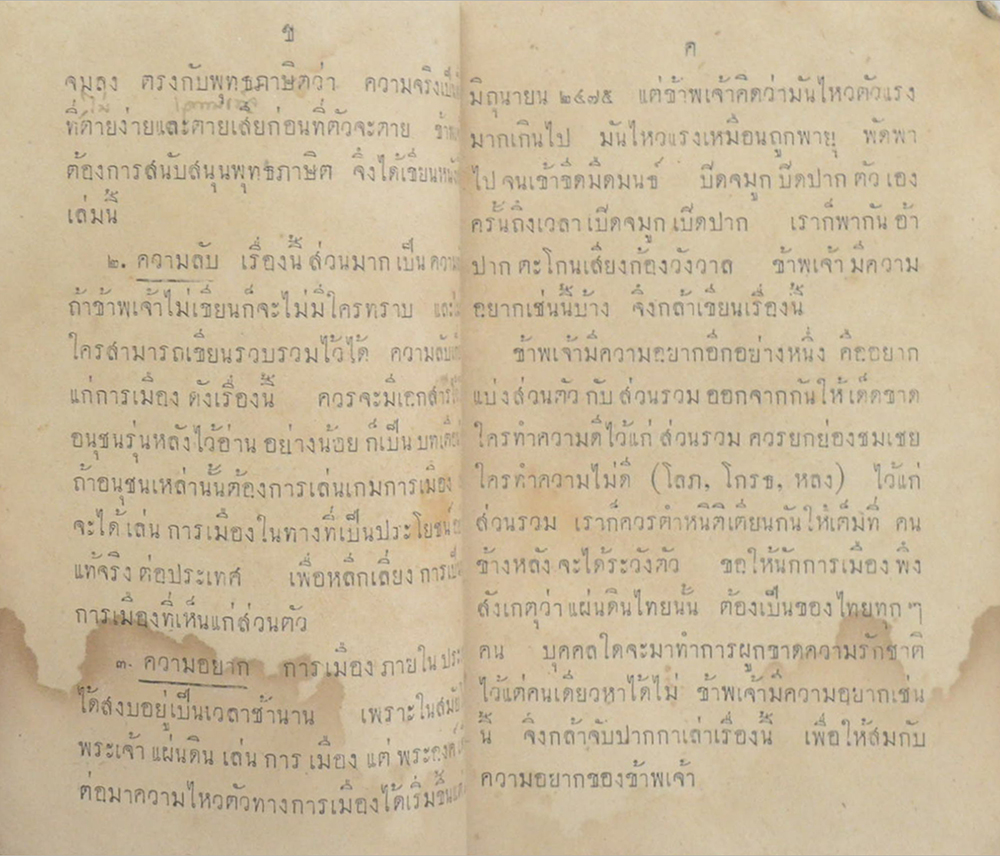 ข
จมลง ตรงกับพุทธภาษิตว่า ความจริงเป็น
ไม่
ที่ตายง่ายและตายเสียก่อนที่ตัวจะตาย
ต้องการสนับสนุนพุทธภาษิต จึงได้เขียนหนัง
เล่มนี้
๒. ความลับ เรื่องนี้ ส่วนมาก เป็น ความ
ถ้าข้าพเจ้าไม่เขียนก็จะไม่มีใครทราบ และ
ใครสามารถเขียนรวบรวมไว้ได้ ความลับ
แก่การเมือง ดังเรื่องนี้ ควรจะมีเอกสาร
อนุชนรุ่นหลังไว้อ่าน อย่างน้อย ก็เป็น บทเตือน
ถ้าอนุชนเหล่านั้นต้องการเล่นเกมการเมือง
จะได้ เล่น การเมืองในทางที่เป็นประโยชน์
แท้จริง ต่อประเทศ เพื่อหลีกเลี่ยง การ
การเมืองที่เห็นแก่ส่วนตัว
๓. ความอยาก การเมือง ภายใน ประ
ได้สงบอยู่เป็นเวลาช้านาน เพราะในสมัย
พระเจ้า แผ่นดิน เล่น การ เมือง แต่ พระองค์
ต่อมาความไหวตัวทางการเมืองได้เริ่มขึ้น
ค
มิถุนายน ๒๔๗๕ แต่ข้าพเจ้าคิดว่ามันไหวตัวแรง
มากเกินไป มันไหวแรงเหมือนถูกพายุ พัดพา
ไป จนเข้าขีดมืดมนธ์ ปีดจมูก ปีดปาก ตัว เอง
ครั้นถึงเวลา เปีดจมูก เปีดปาก เราก็พากัน อ้า
ปาก ตะโกนเสียงก้องวังวาล ข้าพเจ้า มีความ
อยากเช่นนี้บ้าง จึงกล้าเขียนเรื่องนี้
ข้าพเจ้ามีความอยากอีกอย่างหนึ่ง คืออยาก
แบ่งส่วนตัว กับ ส่วนรวม ออกจากกันให้ เด็ดขาด
ใครทำความดีไว้แก่ ส่วนรวม ควรยกย่องชมเชย
ใครทำความไม่ดี (โลภ, โกรธ, หลง) ไว้แก่
ส่วนรวม เราก็ควรตำหนิติเตียนกันให้เต็มที่ คน
ข้างหลัง จะได้ระวังตัว ขอให้นักการเมือง พึง
สังเกตุว่า แผ่นดินไทยนั้น ต้องเป็นของ ไทยทุก ๆ
คน บุคคลใดจะมาทำการผูกขาดความรักชาติ
ไว้แต่คนเดียวหาได้ไม่ ข้าพเจ้ามีความอยากเช่น
นี้ จึงกล้าจับปากกาเล่าเรื่องนี้ เพื่อให้สมกับ
ความอยากของข้าพเจ้า